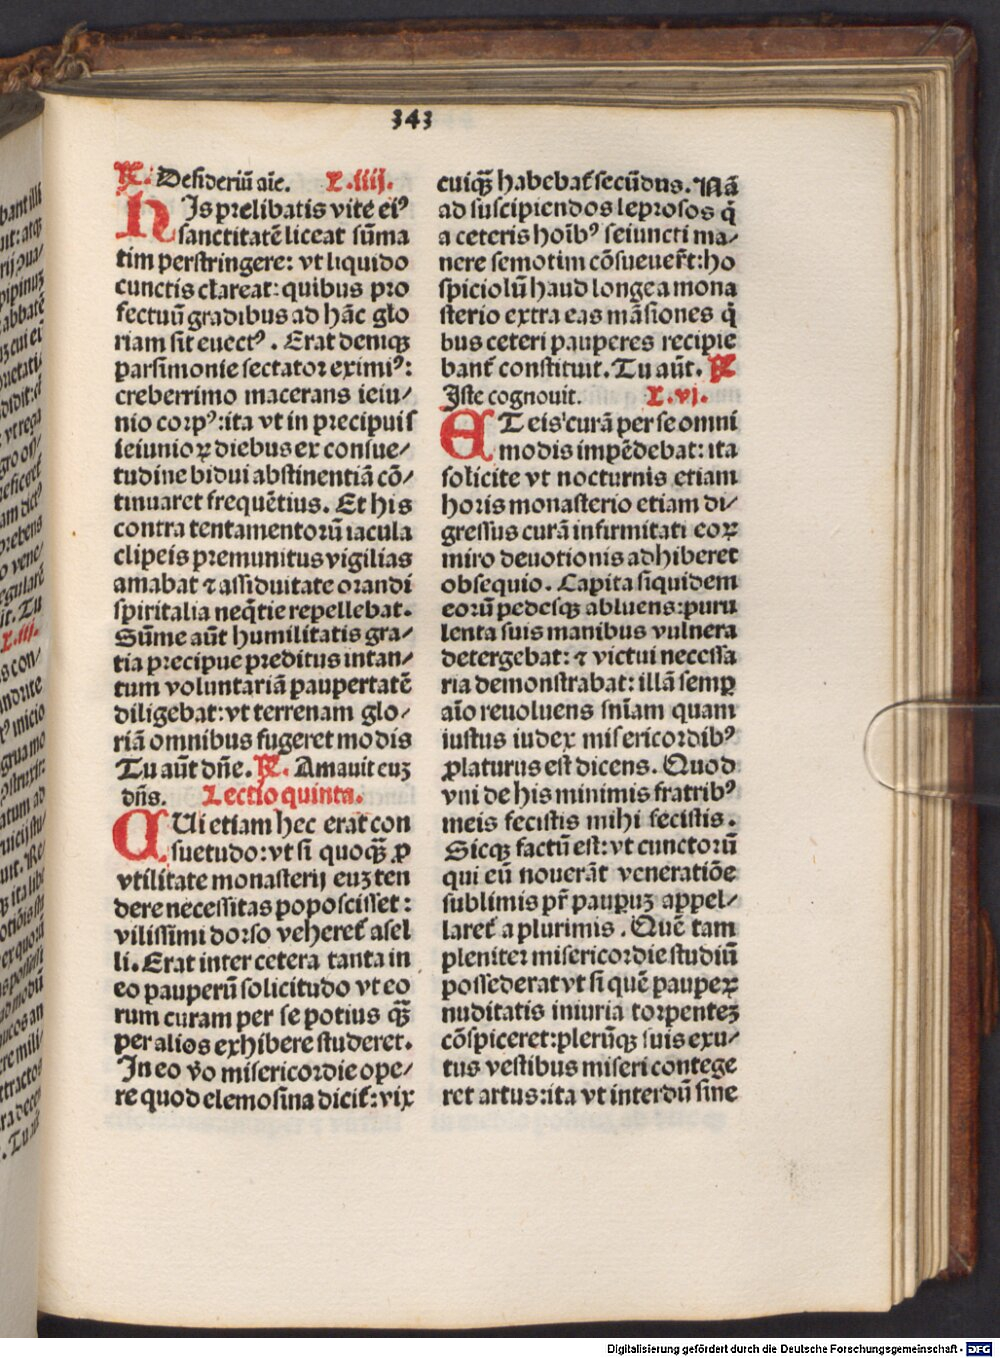 343
℟. Desideriū aīe. L.iiij.
HIs prelibatis vite eiꝰ
sanctitatē liceat sūma
tim perstringere: vt liquido
cunctis clareat: quibus pro
fectuū gradibus ad hāc glo
riam sit euectꝰ. Erat deniqꝫ
parsimonie sectator eximiꝰ:
creberrimo macerans ieiu⸗
nio corpꝰ: ita vt in precipuis
ieiunioꝝ diebus ex consue⸗
tudine bidui abstinentiā cō⸗
tinuaret frequētius. Et his
contra tentamentorū iacula
clipeis premunitus vigilias
amabat ⁊ assiduitate orandi
spiritalia neq̄tie repellebat.
Sūme aūt humilitatis gra⸗
tia precipue preditus intan⸗
tum voluntariā paupertatē
diligebat: vt terrenam glo⸗
riā omnibus fugeret modis
Tu aūt dn̄e. ℟. Amauit euꝫ
dn̄s. Lectio quinta.
QUi etiam hec erat con
suetudo: vt si quoqꝫ̄ ꝑ
vtilitate monasterij euꝫ ten
dere necessitas poposcisset:
vilissimi dorso veheret̄ asel
li. Erat inter cetera tanta in
eo pauperū solicitudo vt eo
rum curam per se potius qꝫ̄
per alios exhibere studeret.
In eo v̄o misericordie ope⸗
re quod elemosina dicit̄: vix
cuiqꝫ̄ habebat̄ secūdus. Nā
ad suscipiendos leprosos q̇
a ceteris hoīb' seiuncti ma⸗
nere semotim cōsueuer̄t: ho
spiciolū haud longe a mona
sterio extra eas māsiones q̇
bus ceteri pauperes recipie
bant̄ constituit. Tu aūt. ℟
Iste cognouit. L.vj.
ET eis' curā per se omni
modis impēdebat: ita
solicite vt nocturnis etiam
horis monasterio etiam di⸗
gressus curā infirmitati eoꝝ
miro deuotionis adhiberet
obsequio. Capita siquidem
eorū pedesqꝫ abluens: puru
lenta suis manibus vulnera
detergebat: ⁊ victui necessa
ria demonstrabat: illā semꝑ
aīo reuoluens sn̄iam quam
iustus iudex misericordibꝰ
ꝓlaturus est dicens. Quod
vni de his minimis fratribꝰ
meis fecistis mihi fecistis.
Sicqꝫ factū est: vt cunctorū
qui eū nouerāt veneratiōe
sublimis pr̄ pauꝑuꝫ appel⸗
laret̄ a plurimis. Quē tam
pleniter misericordie studiū
possederat vt si quē pauperꝝ
nuditatis iniuria torpenteꝫ
cōspiceret: plerūqꝫ suis exu⸗
tus vestibus miseri contege
ret artus: ita vt interdū sine
Digitalisierung gefördert durch die Deutsche Forschungsgemeinschaft - DFG